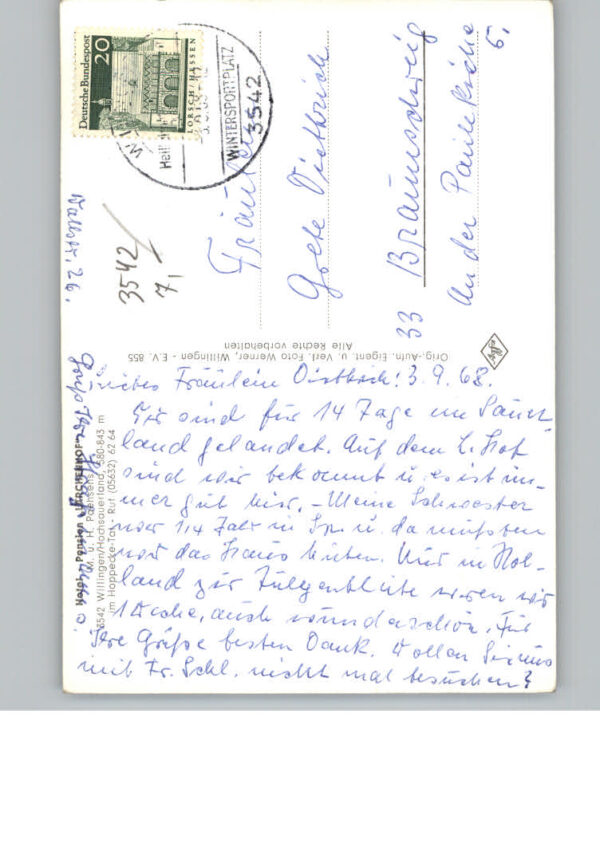 Deutsche Bundespost
20
LORSCH/HESSEN
WINTERSPORTPLATZ
3542
Fräulein
Grete Distbrich
33 Braunschweig
An der Paulikirche
6.
3542
71
Orig.-Aufn. Eigent. u. Verl. Foto Werner, Willingen - E.V. 855
Alle Rechte vorbehalten
Hotel - Pension »LERCHENHOF«
3542 Willingen/Hochsauerland, 580-843 m
im Hoppecke-Tal - Ruf (05632) 6264
Liebes Fräulein 3.9.68.
Wir sind für 14 Tage im Sauer-
land gelandet. Auf dem L. Hof
sind wir bekannt u. es ist im-
mer gut hier. - Meine Schwester
war 1/4 Jahr in Sp. u. da mußten
wir das Haus hüten. Nur in Hol-
land zur Tulpenblüte waren wir
1 Woche, auch wunderschön. Für
Ihre Grüße besten Dank. Wollen Sie uns
mit Fr. Schl. nicht mal besuchen?